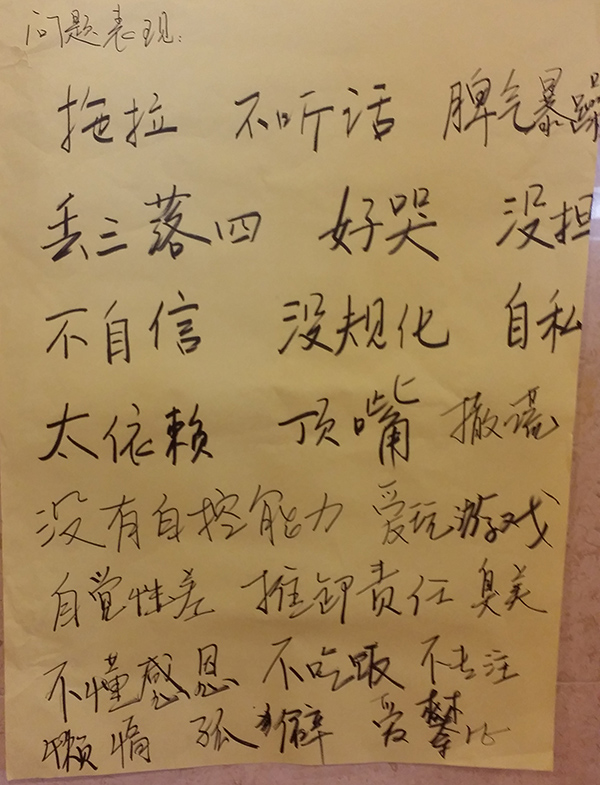 问题表现:
拖拉 不听话 脾气暴躁
丢三落四 好哭 没担
不自信 没规化 自私
太依赖 顶嘴 撒谎
没有自控能力 爱玩游戏
自觉性差 推卸责任 臭美
不懂感恩 不吃 不专注
懒惰 孤僻 爱攀比